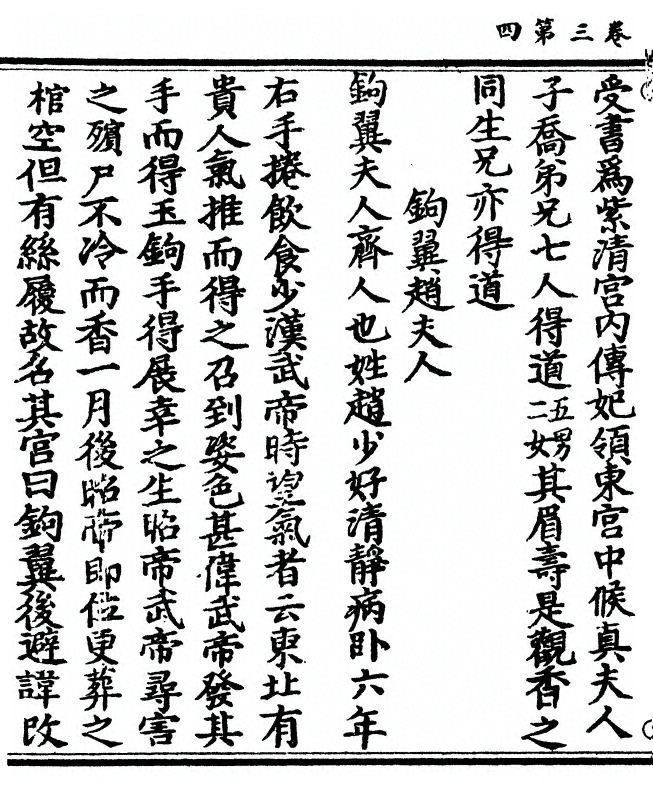 卷三第四
受書爲紫清宮內傳妃領東宮中候真夫人
子喬弟兄七人得道五男二女其眉壽是觀香之
同生兄亦得道
鉤翼趙夫人
鉤翼夫人齊人也姓趙少好清靜病卧六年
右手捲飲食少漢武帝時望氣者云東北有
貴人氣推而得之召到姿色甚偉武帝發其
手而得玉鉤手得展幸之生昭帝武帝尋害
之殯尸不冷而香一月後昭帝即位更葬之
棺空但有絲履故名其宮曰鉤翼後避諱改